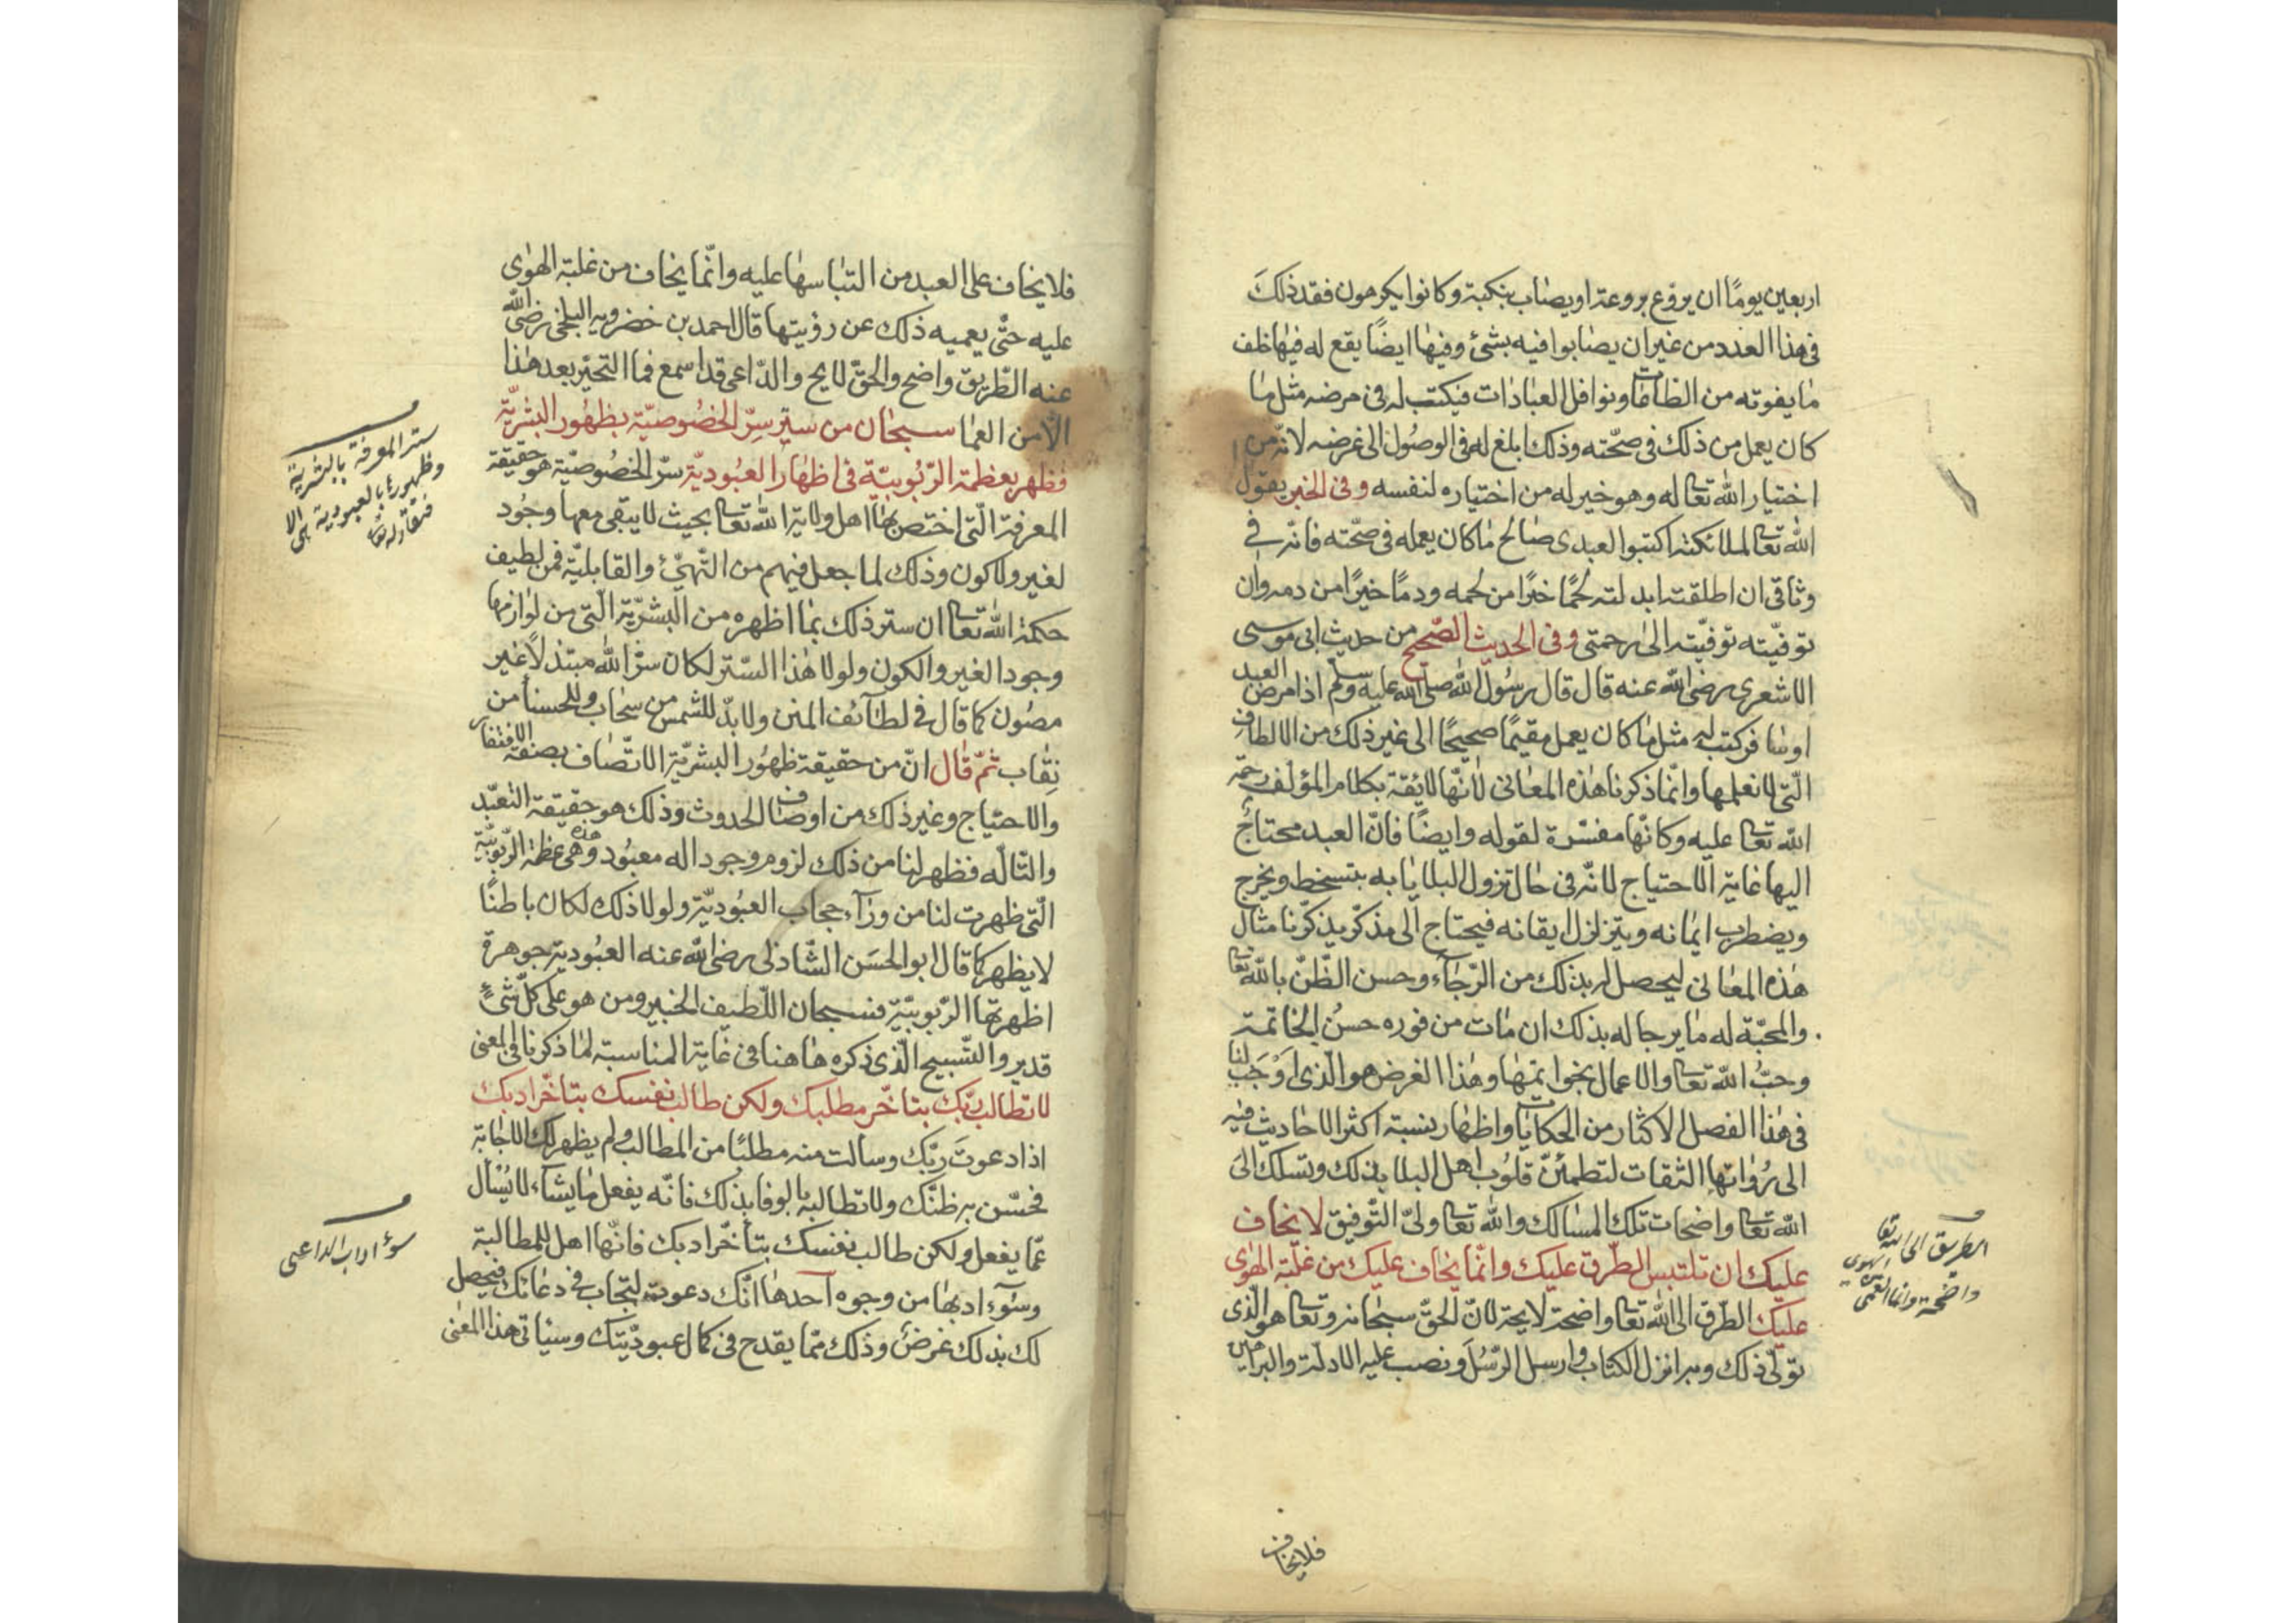 اربعين يومًا ان يروّع بروعة او يصاب بنكبة وكانوا يكرهون فقد ذلك
فى هذا العدد من غير ان يصابوا فيه بشئ وفيها ايضًا يقع له فيها خلف
ما يفوته من الطاعات ونوافل العبادات فيكتب له فى مرضه مثل ما
كان يعمل من ذلك فى صحّته وذلك ابلغ له فى الوصول الى غرضه لانّه من
اختيار الله تعا له وهو خير له من اختياره لنفسه وفى الخبر يقول
الله تعا لملائكته اكتبوا لعبدى صالح ما كان يعمله فى صحّته فانّه فى
وثاقى ان اطلقته ابدلته لحمًا خيرًا من لحمه ودمًا خيرًا من دمه وان
توفّيته توفّيته الى رحمتى وفى الحديث الصّحيح من حديث ابى موسى
الاشعرى رضى الله عنه قال قال رسول الله صلى الله عليه وسلّم اذا مرض العبد
او سافر كتب له مثل ما كان يعمل مقيمًا صحيحًا الى غير ذلك من الالطاف
الّتى لا نعلمها وانّما ذكرنا هذه المعانى لانّها لايقة بكلام المؤلّف رحمة
الله تعا عليه وكانّها مفسّرة لقوله وايضًا فانّ العبد محتاج
اليها غاية الاحتياج لانّه فى حال نزول البلايا به يتسخط ويخرج
ويضطرب ايمانه ويتزلزل ايقانه فيحتاج الى مذكّر يذكّرنا مثال
هذه المعانى ليحصل له بذلك من الرّجاء وحسن الظّنّ بالله تعا
والمحبّة له ما يرجا له بذلك ان مات من فوره حسن الخاتمة
وحبّ الله تعا والاعمال بخواتمها وهذا الغرض هو الّذى اوجب لنا
فى هذا الفصل الاكثار من الحكايات واظهار نسبة اكثر الاحاديث فيه
الى رواتها الثقات لتطمئنّ قلوب اهل البلا بذلك وتسلك الى
الله تعا واضحات تلك المسالك والله تعا ولىّ التّوفيق لا يخاف
عليك ان تلتبس الطّرق عليك وانّما يخاف عليك من غلبة الهوى
عليك الطّرق الى الله تعا واضحة لايحة لانّ الحقّ سبحانه وتعا هو الّذى
تولّى ذلك وبه انزل الكتاب وارسل الرّسل ونصب عليه الادلّة والبراهين
الطريق الى الله تعا
واضحة وانما العمى
الهوى
فلا يخاف
فلا يخاف على العبد من التباسها عليه وانّما يخاف من غلبة الهوى
عليه حتّى يعميه ذلك عن رؤيتها قال احمد بن خضرويه البلخى رضى الله
عنه الطّريق واضح والحقّ لايح والدّاعى قد اسمع فما التحيّر بعد هذا
الّا من العما سبحان من ستر سرّ الخصوصيّة بظهور البشريّة
فظهر بعظمة الرّبوبيّة فى اظهار العبوديّة سرّ الخصوصيّة هو حقيقة
المعرفة الّتى اختص بها اهل ولاية الله تعا بحيث لا يبقى معها وجود
لغير ولا كون وذلك لما جعل فيهم من التّهيّئ والقابليّة فمن لطيف
حكمة الله تعا ان ستر ذلك بما اظهره من البشريّة الّتى من لوازمها
وجود الغير والكون ولولا هذا السّتر لكان سرّ الله مبتذلًا غير
مصون كما قال فى لطائف المنن ولابدّ للشمس من سحاب وللحسنا من
نقاب ثمّ قال انّ من حقيقة ظهور البشريّة الاتّصاف بصفة الافتقار
والاحتياج وغير ذلك من اوصاف الحدوث وذلك هو حقيقة التعبّد
والتّالّه فظهر لنا من ذلك لزوم وجود اله معبود وهذه هى عظمة الرّبوبيّة
الّتى ظهرت لنا من ورآء حجاب العبوديّة ولولا ذلك لكان باطنًا
لا يظهر كما قال ابو الحسن الشّاذلى رضى الله عنه العبودية جوهرة
اظهرتها الرّبوبيّة فسبحان اللّطيف الخبير ومن هو على كلّ شئ
قدير والتّسبيح الّذى ذكره هاهنا فى غاية المناسبة لما ذكرنا فى المعنى
لا تطالب ربّك بتاخّر مطلبك ولكن طالب نفسك بتاخّر ادبك
اذا دعوت ربّك وسالت منه مطلبًا من المطالب ولم يظهر لك الاجابة
فحسّن به ظنّك ولا تطالبه بالوفا بذلك فانّه يفعل ما يشاء لا يُسأل
عمّا يفعل ولكن طالب نفسك بتاخّر ادبك فانّها اهل للمطالبة
وسوء ادبها من وجوه احدها انّك دعوته لتجاب فى دعائك فيحصل
لك بذلك غرض وذلك ممّا يقدح فى كمال عبوديّتك وسياتى هذا المعنى
ستر المعرفة بالبشرية
وظهوره بالعبودية
سوء اداب الداعى